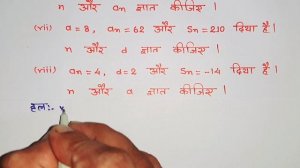 n और an ज्ञात कीजिए ।
(vii) a = 8, an = 62 और Sn = 210 दिया है ।
n और d ज्ञात कीजिए ।
(viii) an = 4, d = 2 और Sn = -14 दिया है ।
n और a ज्ञात कीजिए ।
हल:-